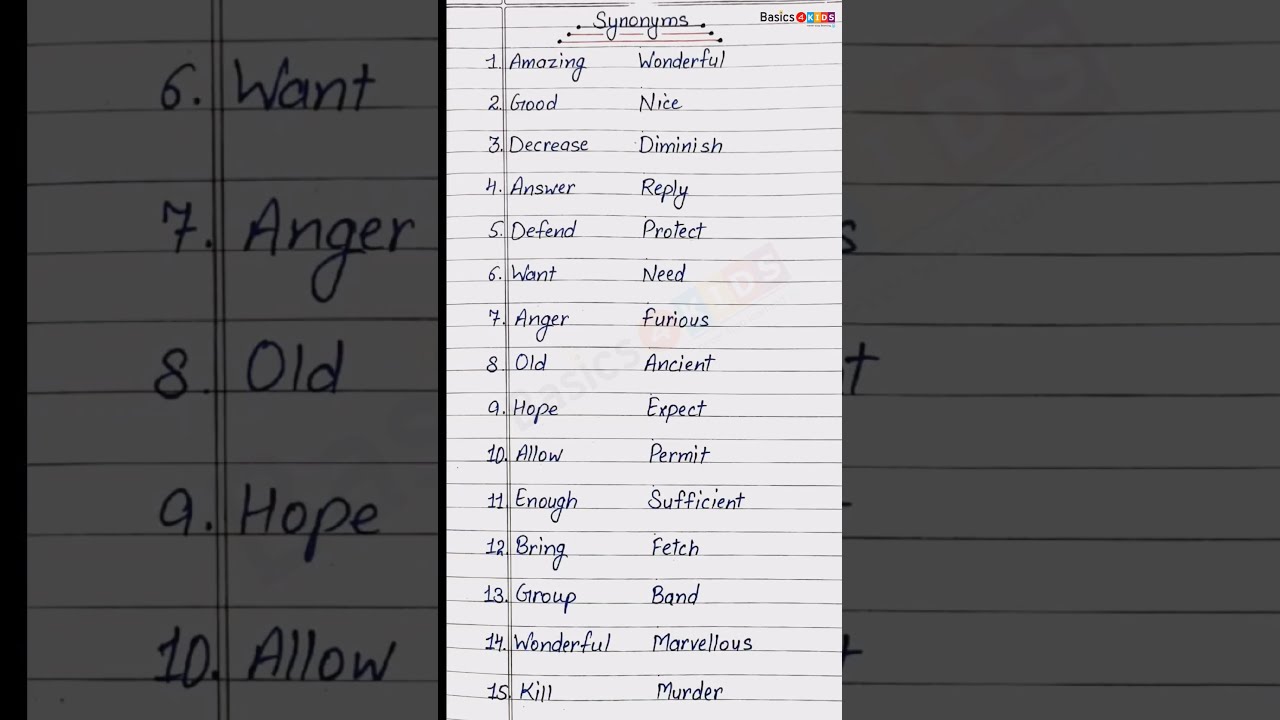 Synonyms
Basics4KIDS
1. Amazing Wonderful
2. Good Nice
3. Decrease Diminish
4. Answer Reply
5. Defend Protect
6. Want Need
7. Anger furious
8. Old Ancient
9. Hope Expect
10. Allow Permit
11. Enough Sufficient
12. Bring Fetch
13. Group Band
14. Wonderful Marvellous
15. Kill Murder
6. Want
7. Anger
8. Old
9. Hope
10. Allow
Basics4KIDS